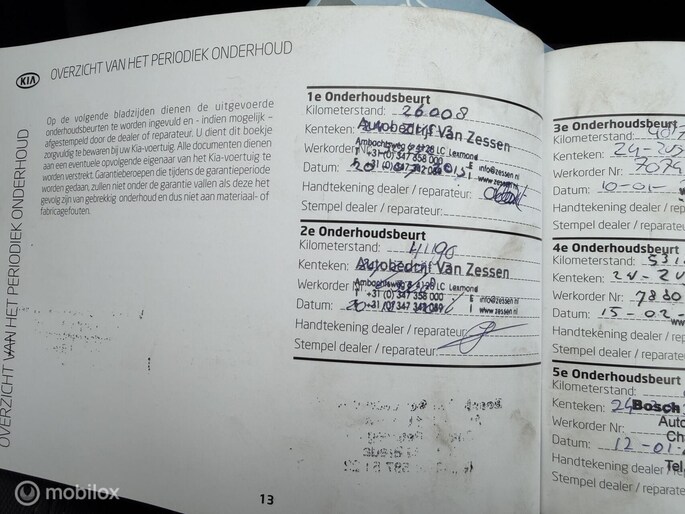 KIA OVERZICHT VAN HET PERIODIEK ONDERHOUD
OVERZICHT VAN HET PERIODIEK ONDERHOUD
Op de volgende bladzijden dienen de uitgevoerde
onderhoudsbeurten te worden ingevuld en - indien mogelijk –
afgestempeld door de dealer of reparateur. U dient dit boekje
zorgvuldig te bewaren bij uw Kia-voertuig. Alle documenten dienen
aan een eventuele opvolgende eigenaar van het Kia-voertuig te
worden verstrekt. Garantieberoepen die tijdens de garantieperiode
worden gedaan, zullen niet onder de garantie vallen als deze het
gevolg zijn van gebrekkig onderhoud en dus niet aan materiaal- of
fabricagefouten.
1e Onderhoudsbeurt
Kilometerstand: 26008
Kenteken: Autobedrijf Van Zessen
Werkorder Nr. Ambachtsweg 9 4128 LC Lexmond
T +31 (0) 347 358 000 E info@zessen.nl
Datum: +31 (0) I www.zessen.nl
Handtekening dealer / reparateur:
Stempel dealer / reparateur:
2e Onderhoudsbeurt
Kilometerstand: 41190
Kenteken: Autobedrijf Van Zessen
Werkorder LC Lexmond
T +31 (0) 347 358 000 E info@zessen.nl
Datum: 20 +31 (0) 347 I www.zessen.nl
Handtekening dealer / reparateur:
Stempel dealer / reparateur:
13
3e Onderhoudsbeurt
Kilometerstand:
Kenteken: 24-
Werkorder Nr: 7074
Datum: 10-01-
Handtekening dealer /
Stempel dealer / reparateur:
4e Onderhoudsbeurt
Kilometerstand: 531
Kenteken: 24-
Werkorder Nr: 7880
Datum: 15-02-
Handtekening dealer / re
Stempel dealer / reparateur:
5e Onderhoudsbeurt
Kilometerstand:
Kenteken: 24 Bosch
Werkorder Nr: Auto
Ch
Datum: 12-01-
Handtekening dealer / Tel
Stempel dealer / reparateur
mobilox